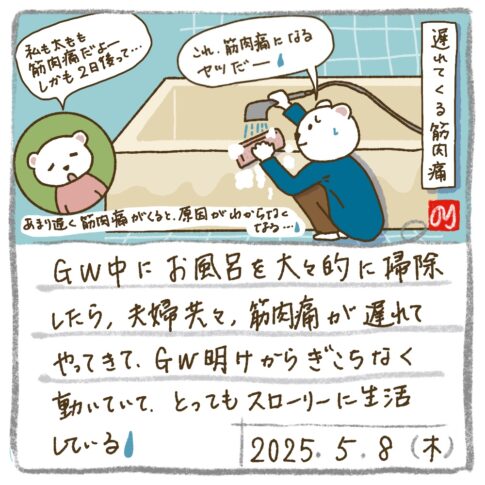 遅れてくる筋肉痛
これ、筋肉痛になる
ヤツだー
私も太もも
筋肉痛だよー
しかも2日後って…
あまり遅く筋肉痛がくると、原因がわからなく
なる…
GW中にお風呂を大々的に掃除
したら、夫婦共々、筋肉痛が遅れて
やってきて、GW明けからぎこちなく
動いていて、とってもスローリーに生活
している
2025.5.8(木)